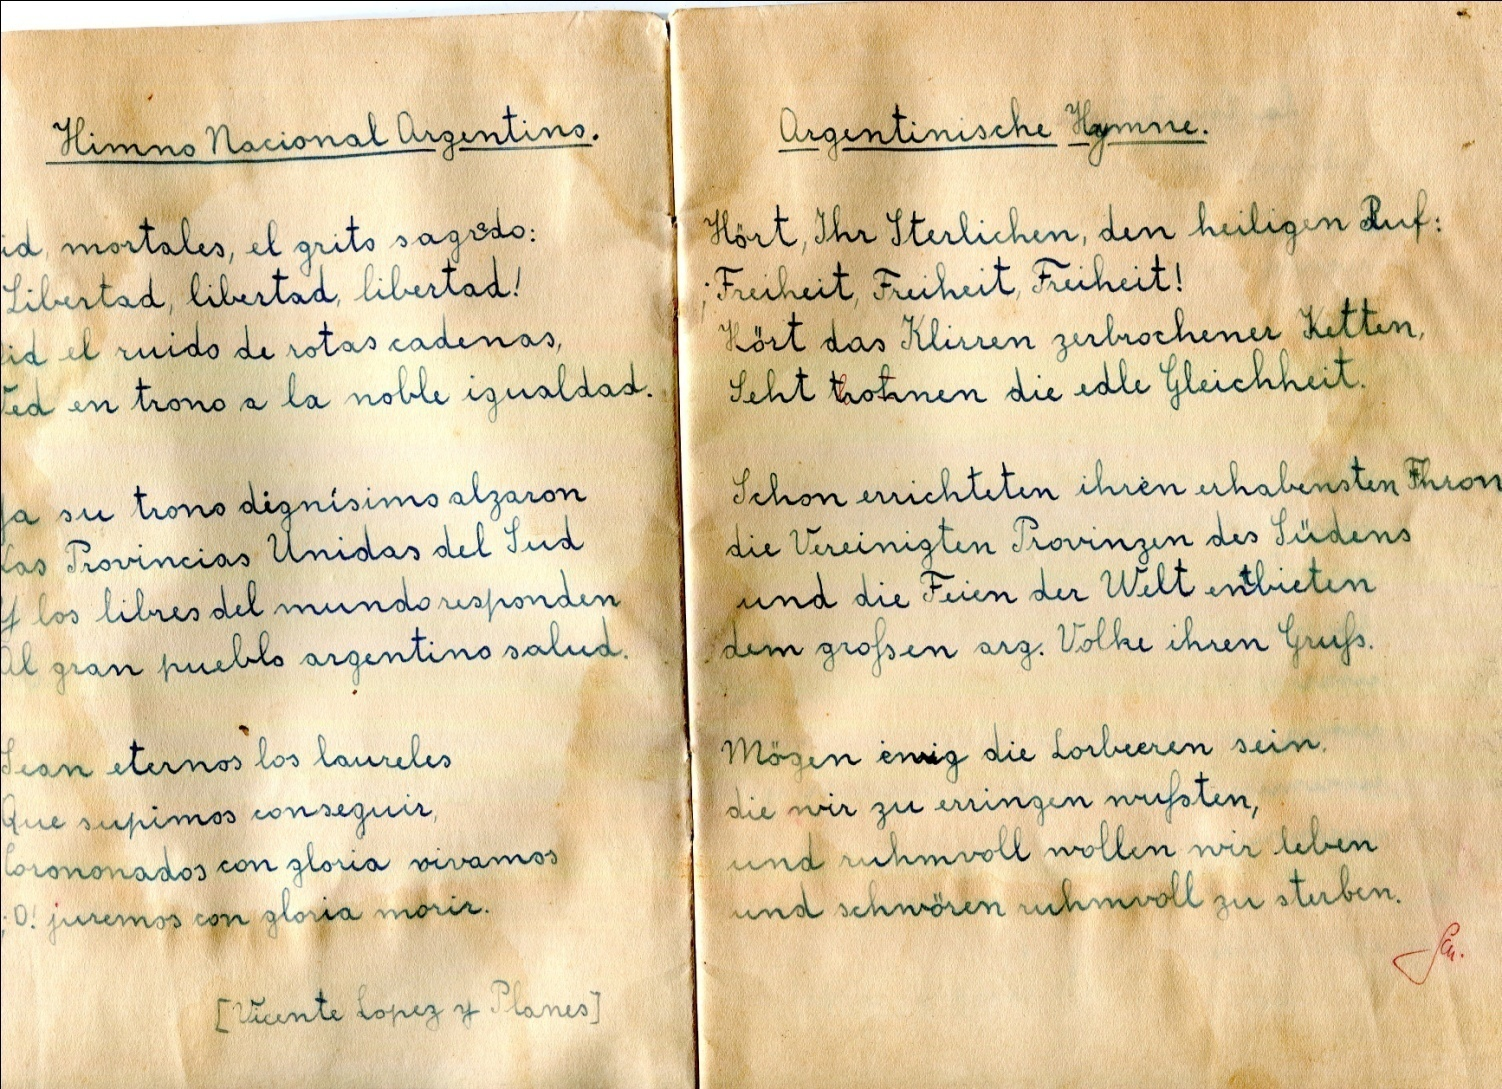 Himno Nacional Argentino.
id, mortales, el grito sagrado:
Libertad, libertad, libertad!
id el ruido de rotas cadenas,
Ved en trono a la noble igualdad.
Ya su trono dignísimo alzaron
Las Provincias Unidas del Sud
Y los libres del mundo responden
Al gran pueblo argentino salud.
Sean eternos los laureles
Que supimos conseguir,
Corononados con gloria vivamos
¡O! juremos con gloria morir.
[Vicente Lopez y Planes]
Argentinische Hymne.
Hört, Ihr Sterlichen, den heiligen Ruf:
¡Freiheit, Freiheit, Freiheit!
Hört das Klirren zerbrochener Ketten,
Seht trohnen die edle Gleichheit.
Schon errichteten ihren erhabensten Thron
die Vereinigten Provinzen des Südens
und die Feien der Welt entbieten
dem großen arg. Volke ihren Gruß.
Mögen ewig die Lorbeeren sein,
die wir zu erringen wußten,
und ruhmvoll wollen wir leben
und schwören ruhmvoll zu sterben.